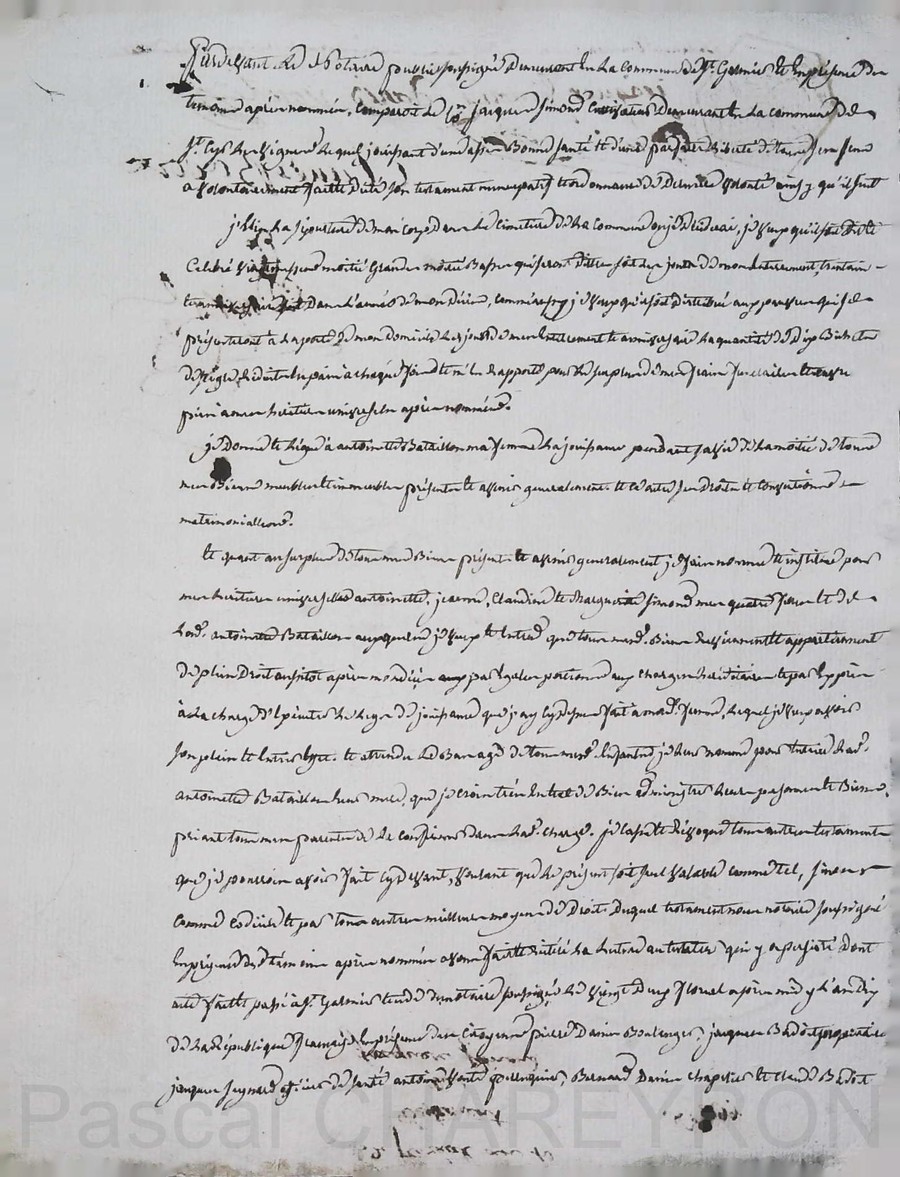 Pardevant le Notaire public soussigné Demeurant En La Commune de St. Galmier et En présence des
temoins après nommés, comparoit le Cen Jacques Simond Cultivateur Demeurant En La commune de
St. Cyr Les Vignes Lequel jouissant d'une assez Bonne santé et d'une parfaite Liberté de tous ses sens
a volontairement fait et dicté son testament nuncupatif et ordonnance de Derniere volonté ainsy qu'il suit
j'Elis La sépulture de mon Corps Dans Le Cimetiere de La Commune ou je décèderai, je veux qu'il soit
Celebré messes moitié Grandes moitié Basses qui seront dittes soit les jours de mon Enterrement, trentain
Dans L'année de mon décès, je veux qu'il soit distribué aux pauvres qui se
présenteront à La porte de mon Domicile Les jours de mon Enterrement et anniversaire La quantité de dix Bichets
de seigle pain à chaque fois et m'En rapporte pour Le surplus de mes frais funeraires et
pies à mes heritieres universelles après nommées.
je Donne et Legue à antoinette Bataillon ma femme La jouissance pendant sa vie de La moitié de tous
mes Biens meubles et immeubles présents et avenir generalement et ce outre ses Droits et Conventions
matrimoniales.
Et quant au surplus de tous mes Biens présents et avenir generalement je fais nomme et institue pour
mes heritieres universelles antoinette, jeanne, Claudine et Marguerite Simond mes quatre filles et de
Lad. antoinette Bataillon auxquelles je veux et Entend que tous mesd. Biens appartiennent
de plein Droit aussitot après mon décès aux par Egales portions aux charges hereditaires et par Exprès
à La charge d'Exécuter Le Legs de jouissance que j'ay cy dessus fait à mad. femme, Lequel je veux avoir
son plein et Entier Effet. Et attendu Le Bas age de tous mesd. Enfants je Leur nomme pour tutrice Lad.
antoinette Bataillon Leur mere, que je crois très En Etat de Bien administrer Leurs personnes et Biens,
priant tous mes parents de La confirmer Dans Lad. charge. je casse et révoque tous autres testaments
que je pourrois avoir fait cy devant, voulant que Le présent soit seul valable comme tel, sinon
comme codicille et par tous autres meilleurs moyens de Droit. Duquel testament nous notaire soussigné
En présence des témoins après nommés avons fait Lecture au testateur qui y a persisté Dont
acte fait et passé à St. Galmier Etude du notaire soussigné Le Vingt Deux floreal après midy L'an dix
de La République française En présence des Citoyens pierre Danier Boulanger, jacques Badoit proprietaire
jacques officier de santé antoine, Bernard Danier chapelier et Claude Badoit
Pascal CHAREYRON